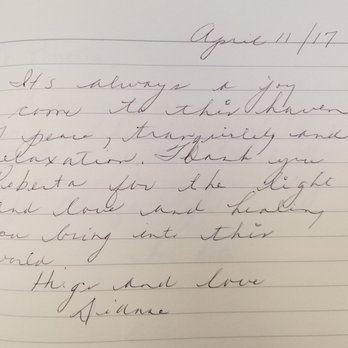 April 11/17
It's always a joy
come to this haven
f peace, tranquility and
elaxation. Thank you
Roberta for the light
and love and healing
ou bring into this
world
Hugs and love
Dianne